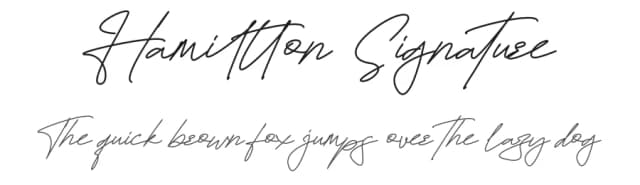 Hamillton Signature
The quick brown fox jumps over the lazy dog